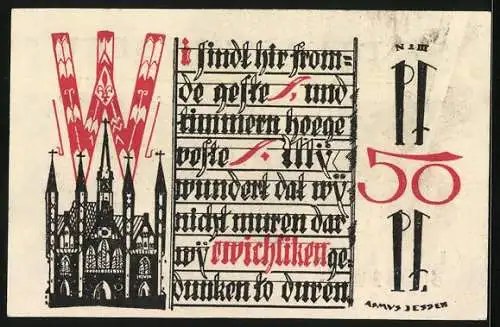 W
i sindt hir from=
de geste , und
timmern hoege
veste , Wy
wundert dat wy
nicht muren dar
wy ewichliken ge
dunken to duren
N 2 III
Pf
50
Pf
ASMUS JESSEN